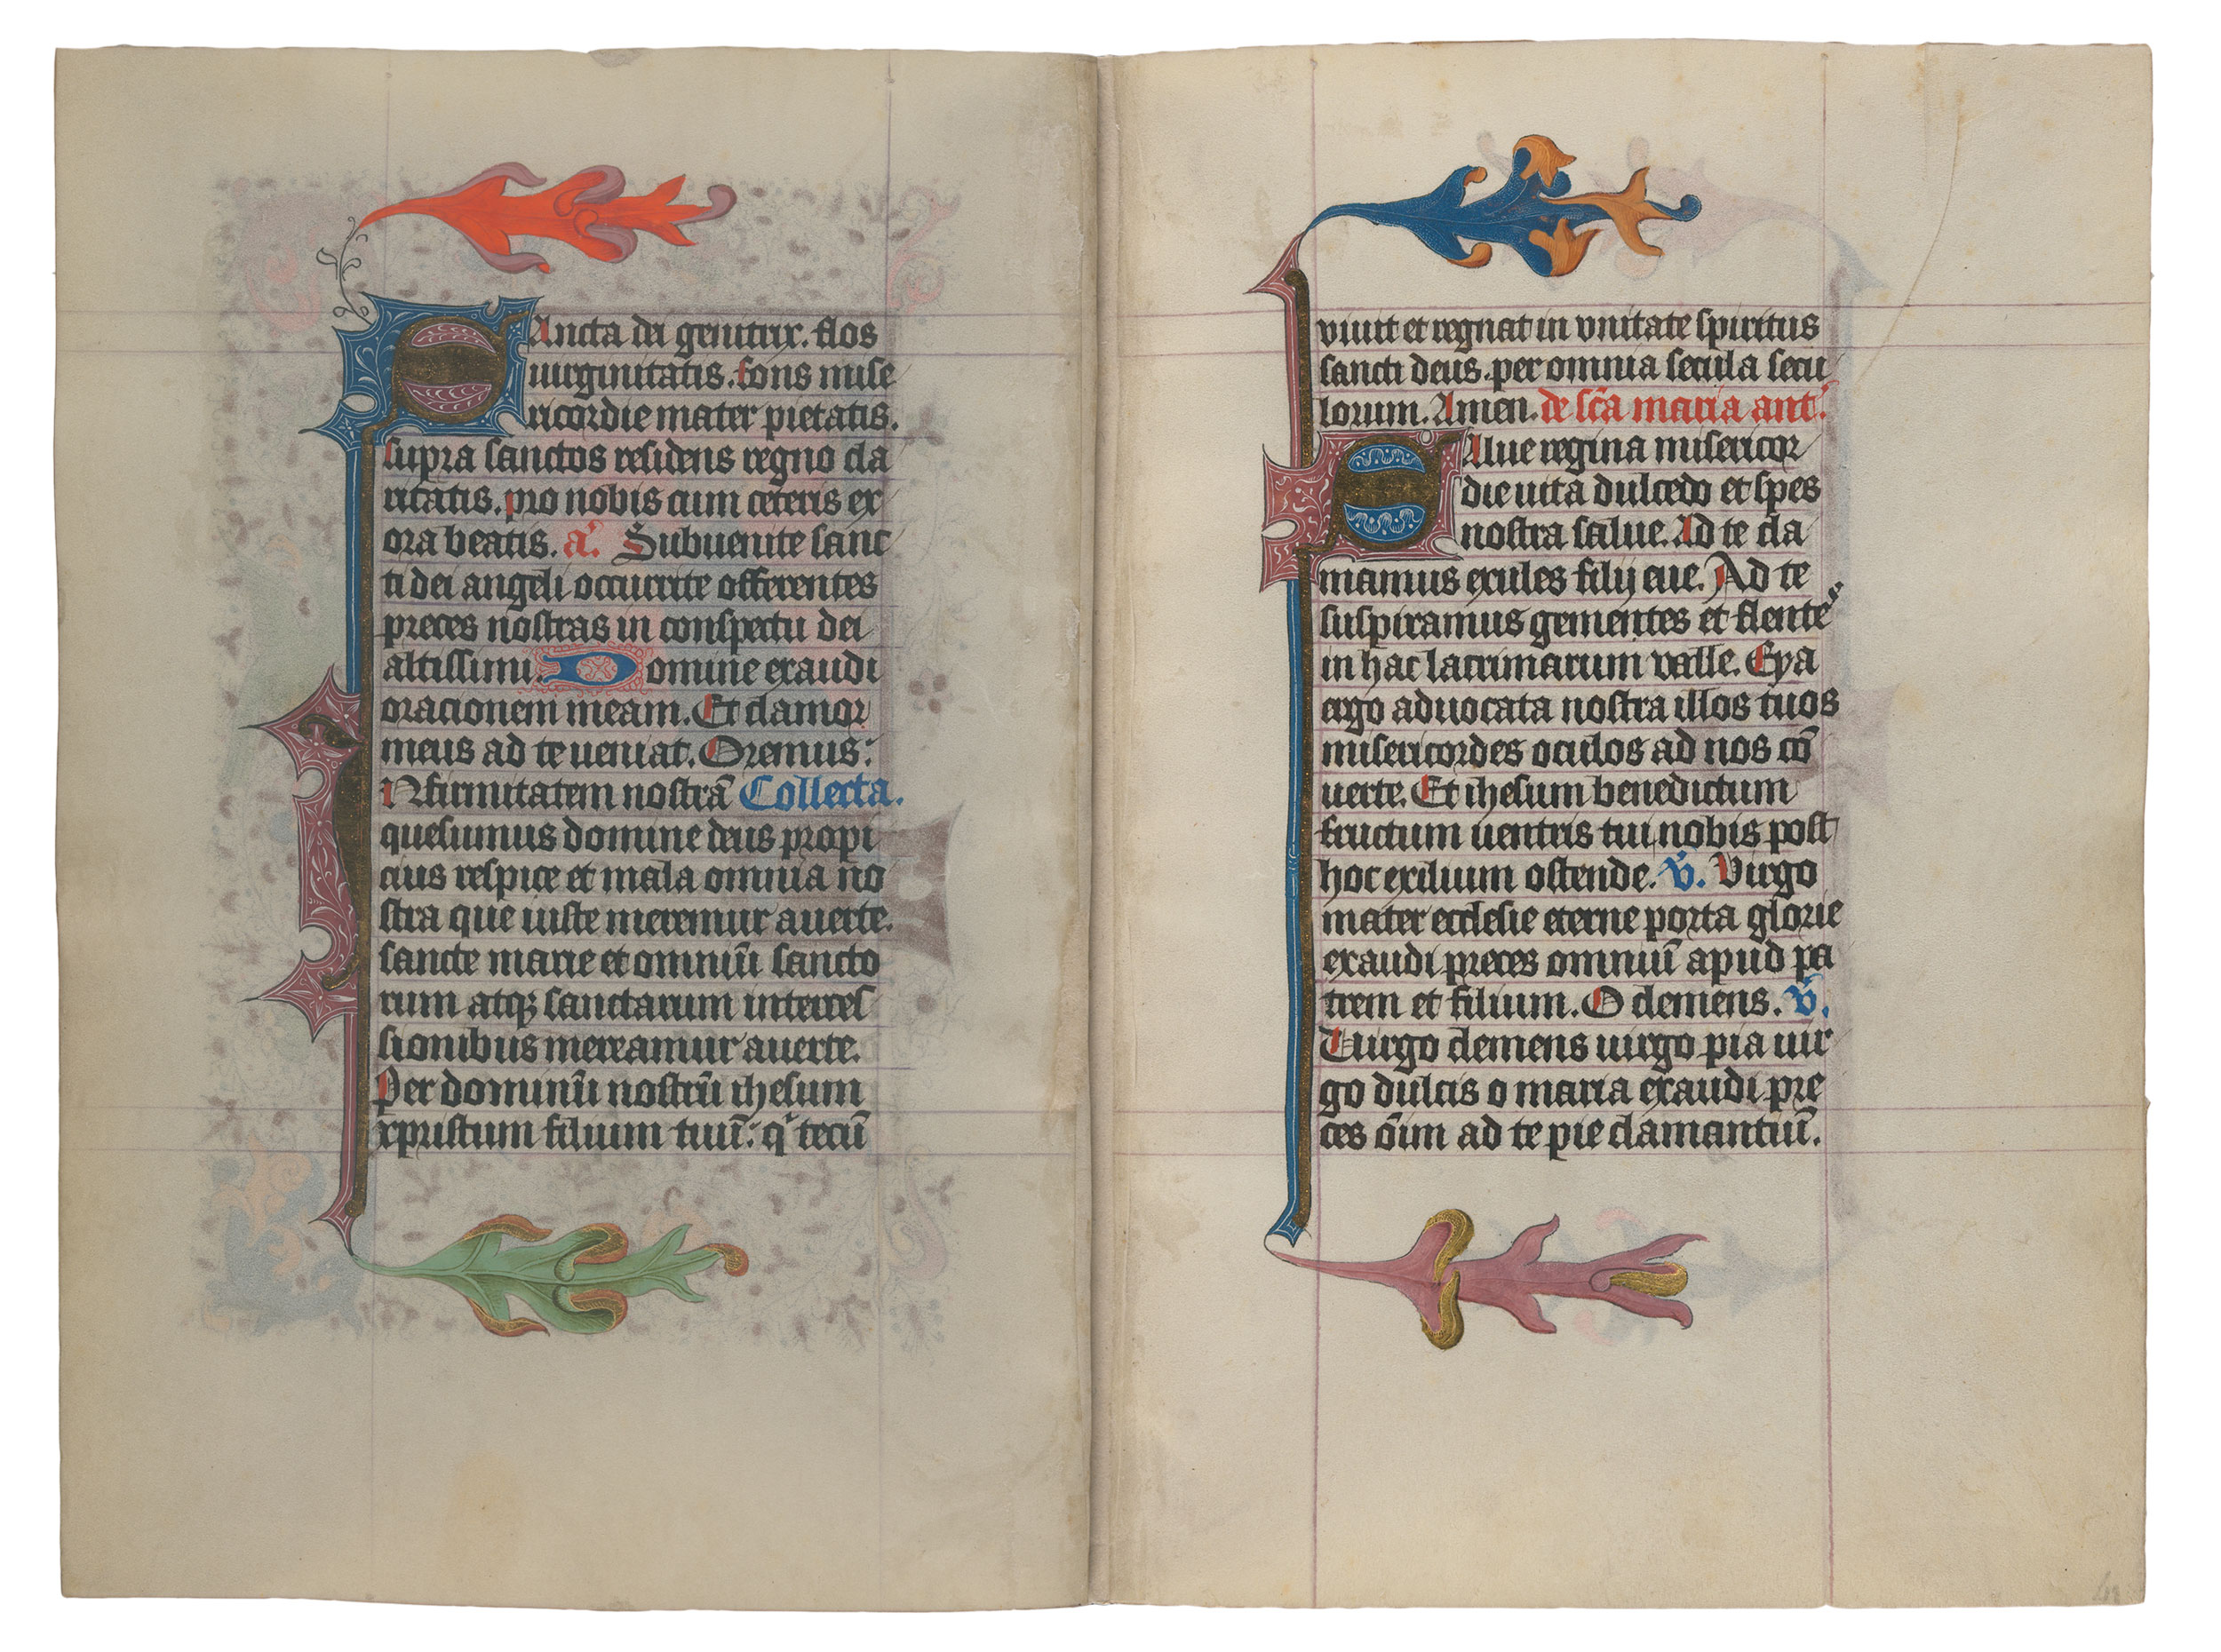 SAncta dei genitrix. flos
uirginitatis. fons mise
ricordie mater pietatis.
supra sanctos residens regno cla
ritatis. pro nobis cum ceteris ex
ora beatis. a. Subuenite sanc
ti dei angeli occurrite offerentes
preces nostras in conspectu dei
altissimi. Domine exaudi
oracionem meam. Et clamor
meus ad te ueniat. Oremus:
INfirmitatem nostrā Collecta.
quesumus domine deus propi
cius respice et mala omnia no
stra que iuste meremur auerte.
sancte marie et omniū sancto
rum atqȝ sanctarum interces
sionibus mereamur auerte.
Per dominū nostrū ihesum
xpristum filium tuū: q tecū
viuit et regnat in vnitate spiritus
sancti deus. per omnia secula secu
lorum. Amen. de scā maria ant.
SAlue regina misericor
die uita dulcedo et spes
nostra salue. Ad te cla
mamus exules filij eue. Ad te
suspiramus gementes et flentes
in hac lacrimarum valle. Eya
ergo aduocata nostra illos tuos
misericordes oculos ad nos cō
uerte. Et ihesum benedictum
fructum uentris tui nobis post
hoc exilium ostende. v. Virgo
mater ecclesie eterne porta glorie
exaudi preces omniū apud pa
trem et filium. O clemens. v.
Uirgo clemens uirgo pia uir
go dulcis o maria exaudi pre
ces ōim ad te pie clamantiū.